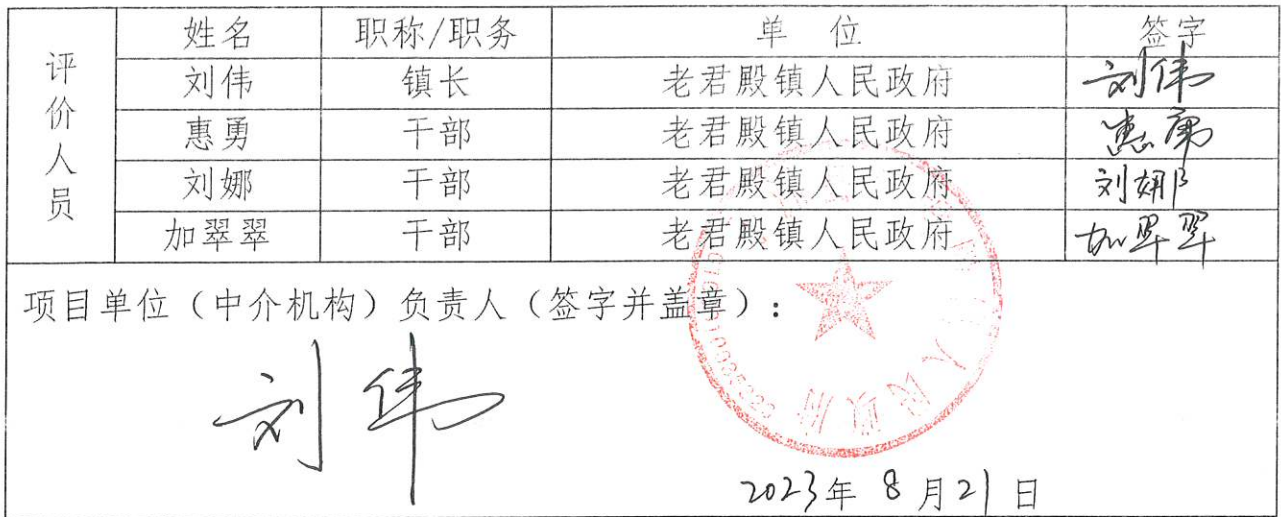 评价人员
姓名 职称/职务 单 位 签字
刘伟 镇长 老君殿镇人民政府 刘伟
惠勇 干部 老君殿镇人民政府 惠勇
刘娜 干部 老君殿镇人民政府 刘娜
加翠翠 干部 老君殿镇人民政府 加翠翠
项目单位（中介机构）负责人（签字并盖章）：
刘伟
2023年 8月21日